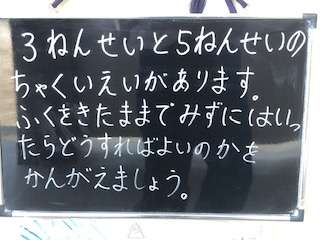 3ねんせいと5ねんせいの
ちゃくいえいがあります。
ふくをきたままでみずにはいっ
たらどうすればよいのかを
かんがえましょう。